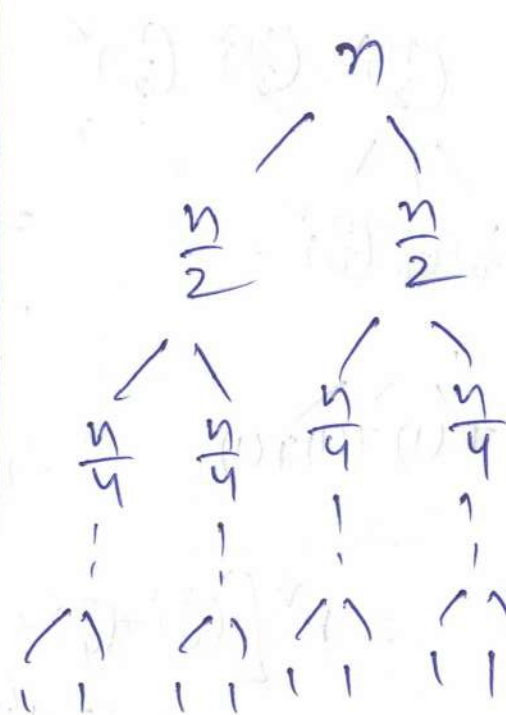 n
n/2 n/2
n/4 n/4 n/4 n/4
1 1 1 1 1 1 1 1